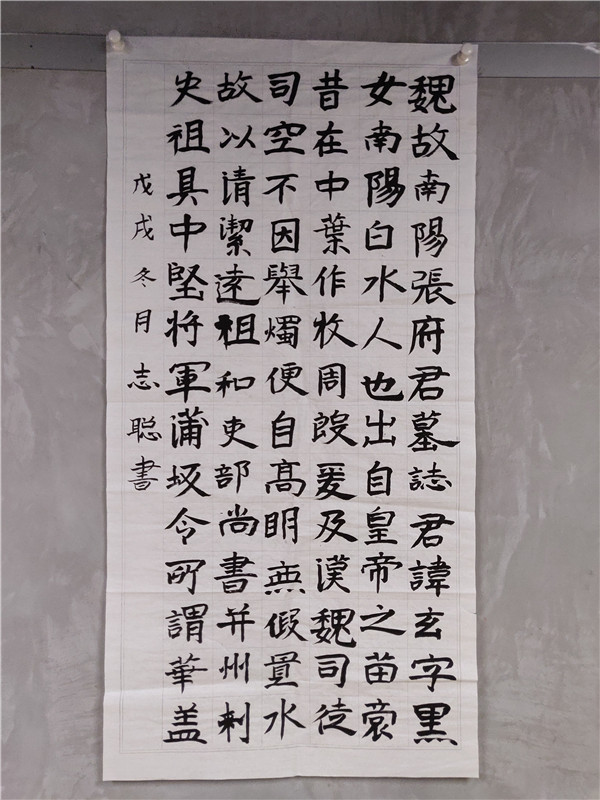 魏故南陽張府君墓誌君諱玄字黑
女南陽白水人也出自皇帝之苗裔
昔在中葉作牧周殷爰及漢魏司徒
司空不因舉燭便自高明無假置水
故以请潔遠祖和吏部尚書并州刺
史祖具中堅将軍蒲坂令所謂華盖
戊戌冬月志聪書